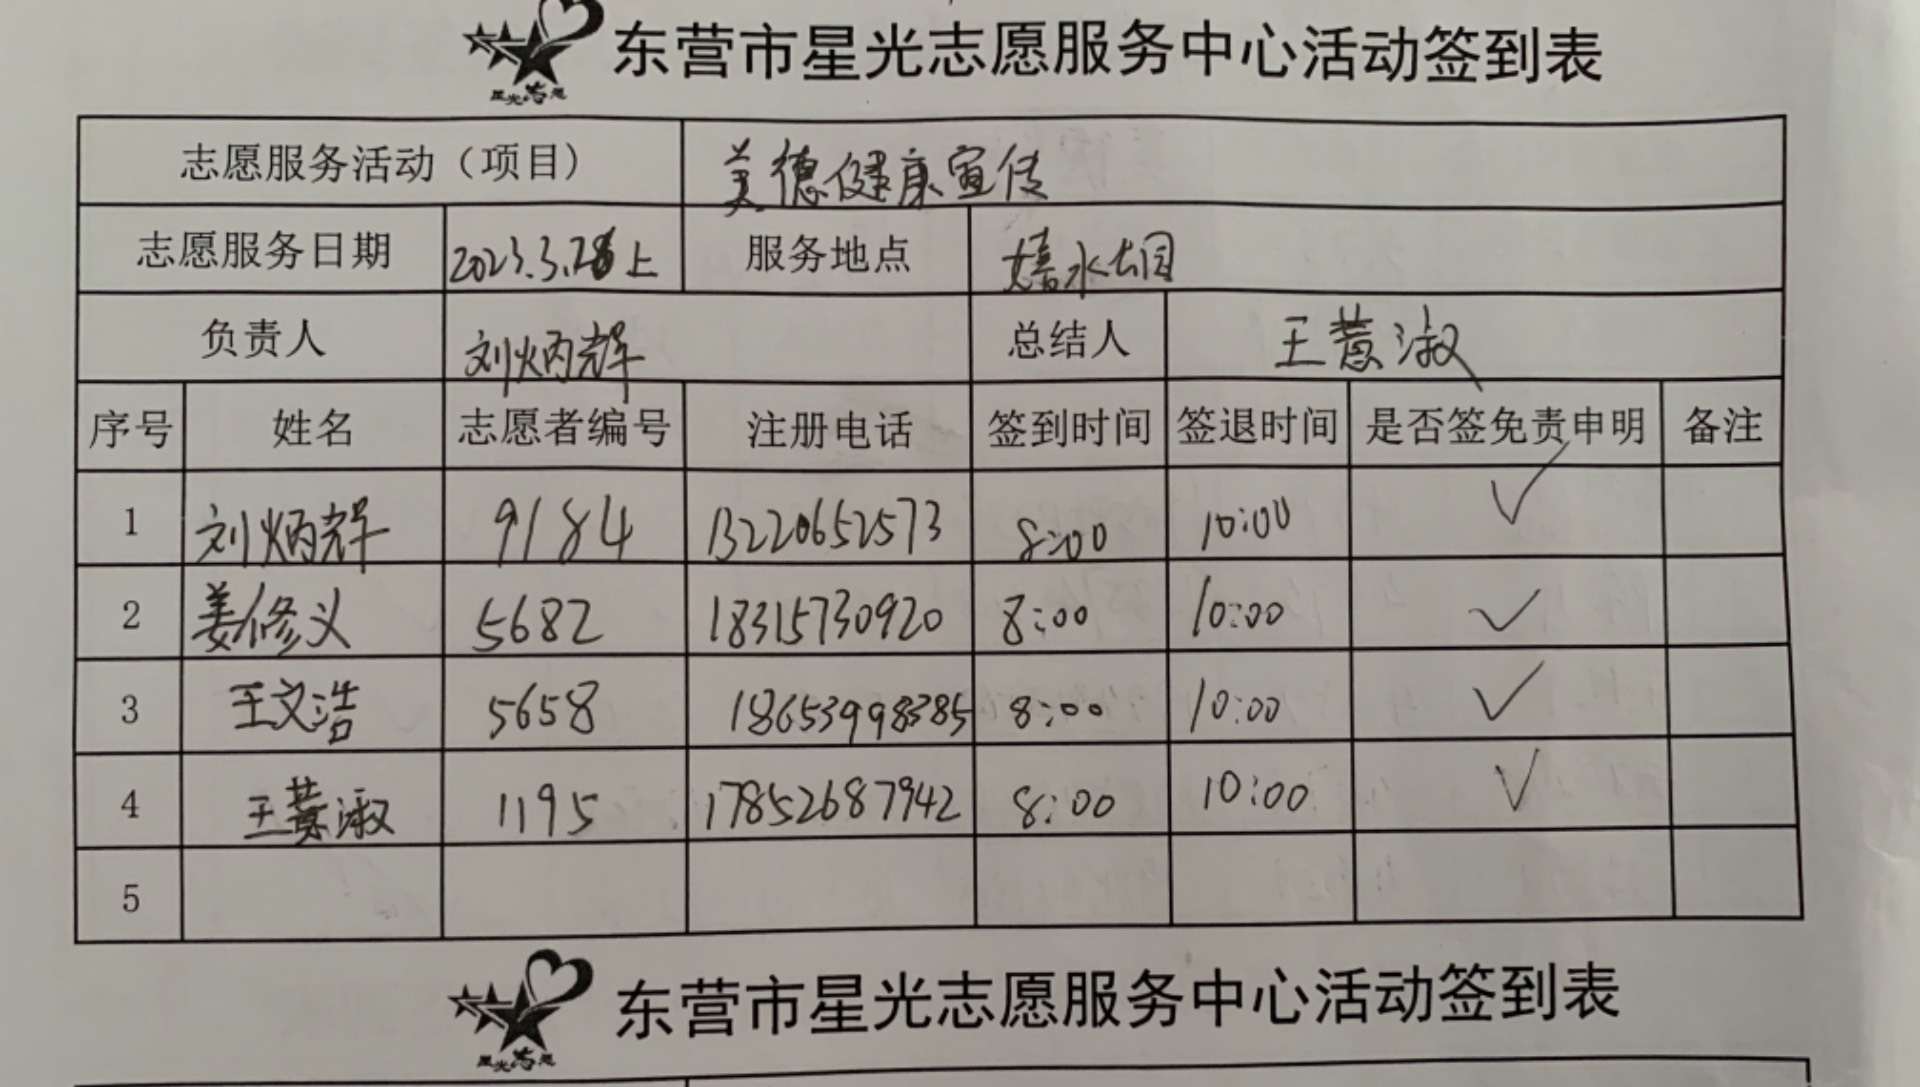 星光志愿
东营市星光志愿服务中心活动签到表
志愿服务活动（项目） 美德健康宣传
志愿服务日期 2023.3.28上 服务地点 嬉水大园
负责人 刘炳辉 总结人 王淑
序号 姓名 志愿者编号 注册电话 签到时间 签退时间 是否签免责申明 备注
1 刘炳辉 9184 13220652573 8:00 10:00 ✓
2 姜修义 5682 18315730920 8:00 10:00 ✓
3 王文浩 5658 18653998385 8:00 10:00 ✓
4 王淑 1195 17852687942 8:00 10:00 ✓
5
星光志愿
东营市星光志愿服务中心活动签到表